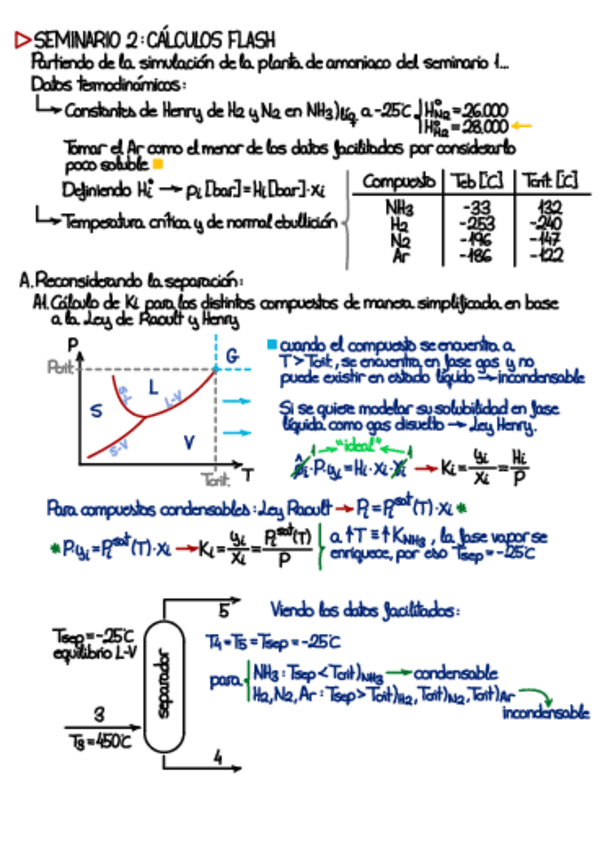 ▷ SEMINARIO 2: CÁLCULOS FLASH
Partiendo de la simulación de la planta de amoniaco del seminario 1...
Datos termodinámicos:
Constantes de Henry de H2 y N2 en NH3)líq a -25°C { H°N2 = 26.000
H°H2 = 28.000 ←
Tomar el Ar como el menor de los datos facilitados por considerarlo
poco soluble
Definiendo Hi° → pi [bar] = Hi [bar] · xi
Temperatura crítica y de normal ebullición
Compuesto Teb [°C] Tcrit. [°C]
NH3 -33 132
H2 -253 -240
N2 -196 -147
Ar -186 -122
A. Reconsiderando la separación:
A1. Cálculo de Ki para los distintos compuestos de manera simplificada en base
a la Ley de Raoult y Henry
P
Pcrit.
S
S-L
L
L-V
G
S-V
V
Tcrit.
T
cuando el compuesto se encuentra a
T > Tcrit., se encuentra en fase gas y no
puede existir en estado líquido → incondensable
Si se quiere modelar su solubilidad en fase
líquida como gas disuelto → Ley Henry.
"ideal"
· P · yi = Hi · xi · γi → Ki = yi/xi = Hi/P
Para compuestos condensables: Ley Raoult → Pi = Pi^sat (T) · xi *
* P · yi = Pi^sat (T) · xi → Ki = yi/xi = Pi^sat (T)/P
a ↑T ≡ ↑KNH3, la fase vapor se
enriquece, por eso Tsep = -25°C
Tsep = -25°C
equilibrio L-V
separador
5
3
T3 = 450°C
4
Viendo los datos facilitados:
T4 = T5 = Tsep = -25°C
para { NH3: Tsep < Tcrit)NH3 → condensable
H2, N2, Ar: Tsep > Tcrit)H2, Tcrit)N2, Tcrit)Ar
incondensable